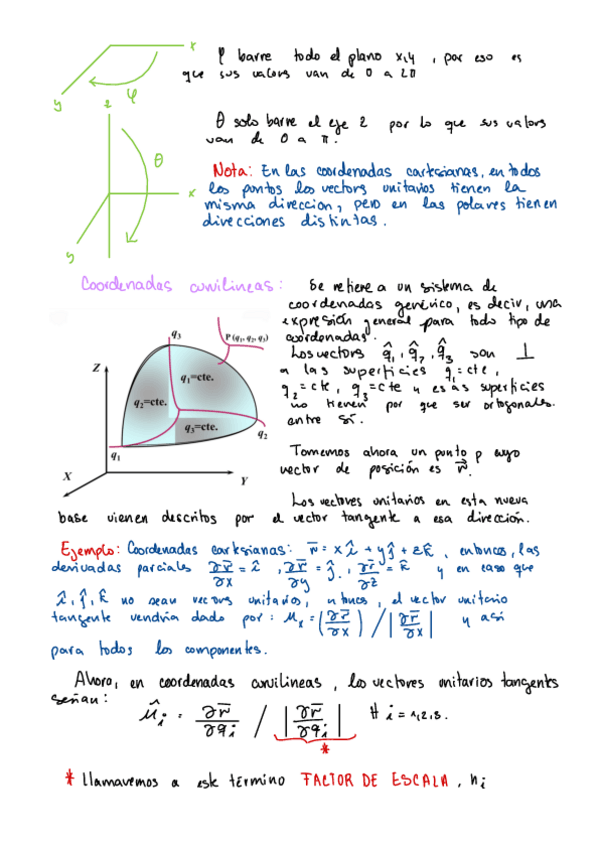 φ barre todo el plano x,y , por eso es
que sus valors van de 0 a 2π
x
y
φ
z
θ solo barre el eje z por lo que sus valors
van de 0 a π.
θ
x
y
Nota: En las coordenadas cartesianas, en todos
los puntos los vectors unitarios tienen la
misma direccion, pero en las polares tienen
direcciones distintas.
Coordenadas curvilineas: Se refiere a un sistema de
coordenadas genérico, es decir, una
expresión general para todo tipo de
coordenadas.
Los vectors q̂₁, q̂₂, q̂₃ son ⊥
a las superficies q₁=cte,
q₂=cte, q₃=cte y esas superficies
no tienen por que ser ortogonales
entre sí.
q₃
P (q₁, q₂, q₃)
Z
q₁=cte.
q₂=cte.
q₃=cte.
q₂
q₁
X
Y
Tomemos ahora un punto p cuyo
vector de posición es r⃗.
Los vectores unitarios en esta nueva
base vienen descritos por el vector tangente a esa dirección.
Ejemplo: Coordenadas cartesianas: r̄ = x î + y ĵ + z k̂ , entonces, las
derivadas parciales ∂r̄/∂x = î , ∂r̄/∂y = ĵ , ∂r̄/∂z = k̂ y en caso que
î, ĵ, k̂ no sean vectors unitarios, entonces, el vector unitario
tangente vendría dado por: μₓ = (∂r̄/∂x) / |∂r̄/∂x| y así
para todos los componentes.
Ahora, en coordenadas curvilineas, los vectores unitarios tangents
serían:
μ̂ᵢ = ∂r̄/∂qᵢ / |∂r̄/∂qᵢ| ∀ i = 1,2,3.
*
* Llamaremos a este término FACTOR DE ESCALA, hᵢ